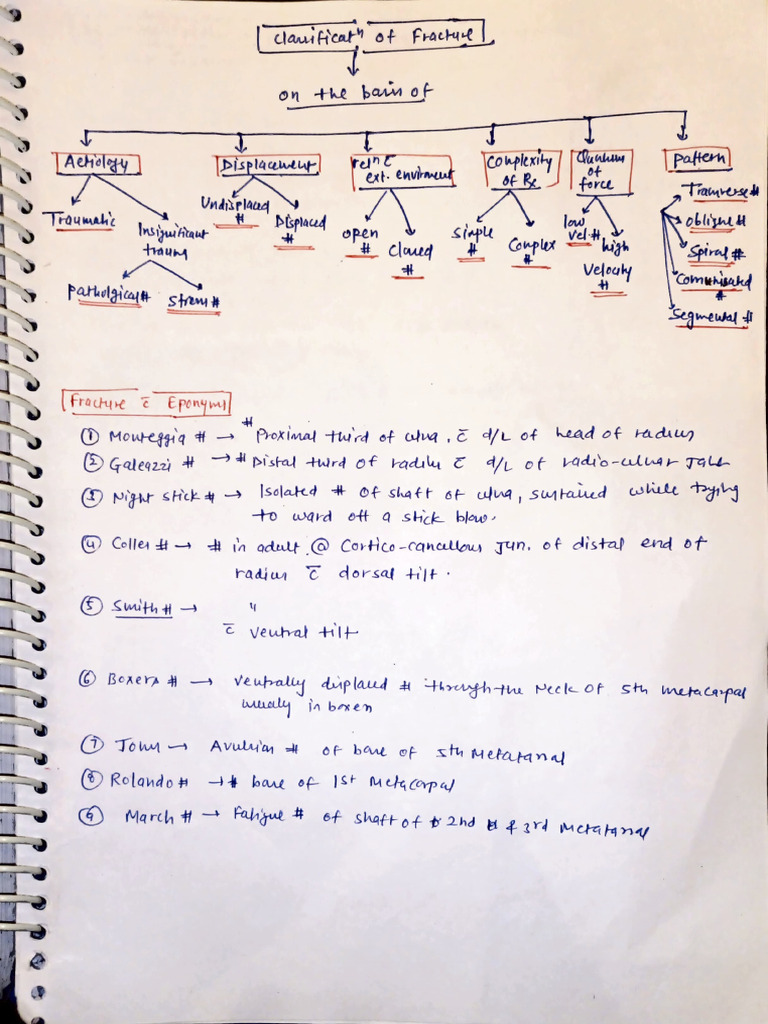 Classificatⁿ of Fracture
on the basis of
Aetiology
Displacement
relⁿ c̄ ext. envirment
Complexity of Rx
Quantum of force
Pattern
Traumatic
Insignificant trauma
Pathological #
Stress #
Undisplaced #
Displaced #
open #
Closed #
Simple #
Complex #
low vel. #
high Velocity #
Transverse #
oblique #
Spiral #
Comminuted #
Segmental #
Fracture c̄ Eponyms
① Monteggia # → # Proximal third of ulna, c̄ d/L of head of radius
② Galeazzi # → # Distal third of radius c̄ d/L of radio-ulnar
③ Night stick # → Isolated # of shaft of ulna, sustained while trying
to ward off a stick blow.
④ Colles # → # in adult @ Cortico-cancellous Jun. of distal end of
radius c̄ dorsal tilt.
⑤ Smith # → "
c̄ ventral tilt
⑥ Boxers # → ventrally displaced # through the Neck of 5th metacarpal
usually in boxers
⑦ Jones → Avulsion # of base of 5th Metatarsal
⑧ Rolando # → # base of 1st Metacarpal
⑨ March # → Fatigue # of shaft of 2nd & 3rd Metatarsal